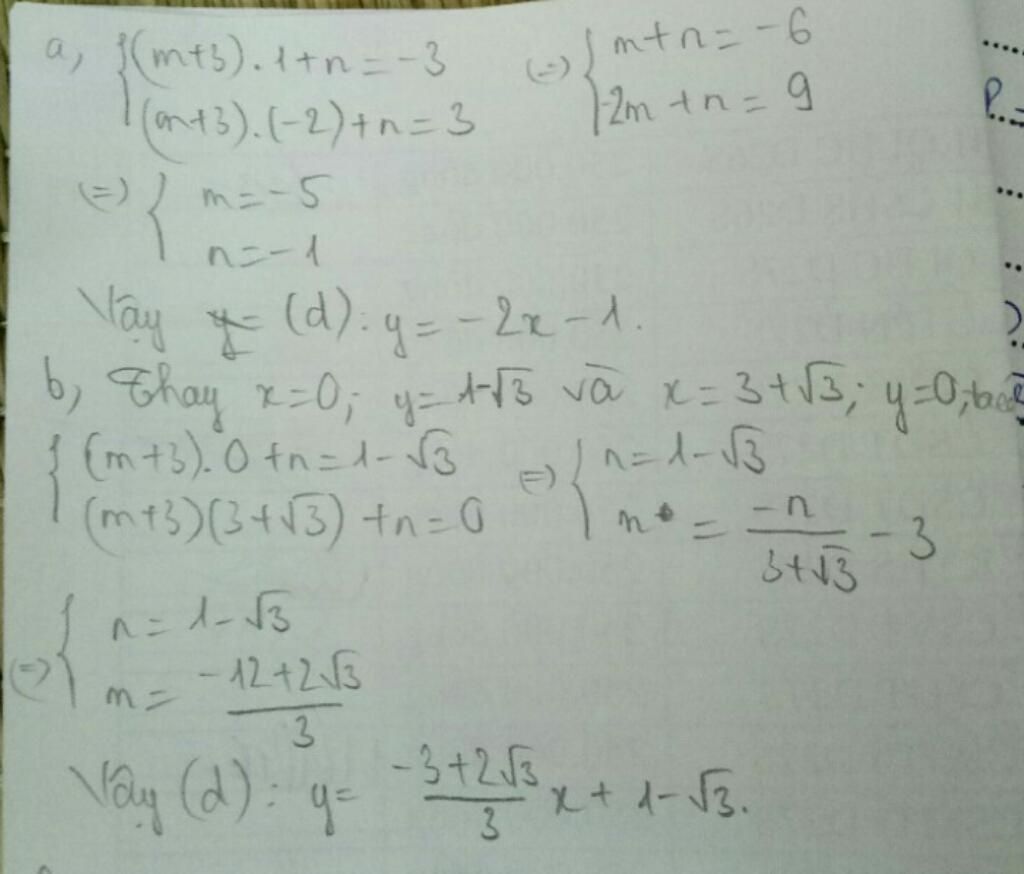 a, {(m+3).1+n=-3 (=) {m+n=-6
{(m+3).(-2)+n=3 {-2m+n=9
(=) {m=-5
{n=-1
Vậy (d): y=-2x-1.
b, Thay x=0; y=1-√3 và x=3+√3; y=0, ta có
{(m+3).0+n=1-√3 (=) {n=1-√3
{(m+3)(3+√3)+n=0 {m = -n/(3+√3) - 3
(=) {n=1-√3
{m= (-12+2√3)/3
Vậy (d): y= (-3+2√3)/3 x+1-√3.